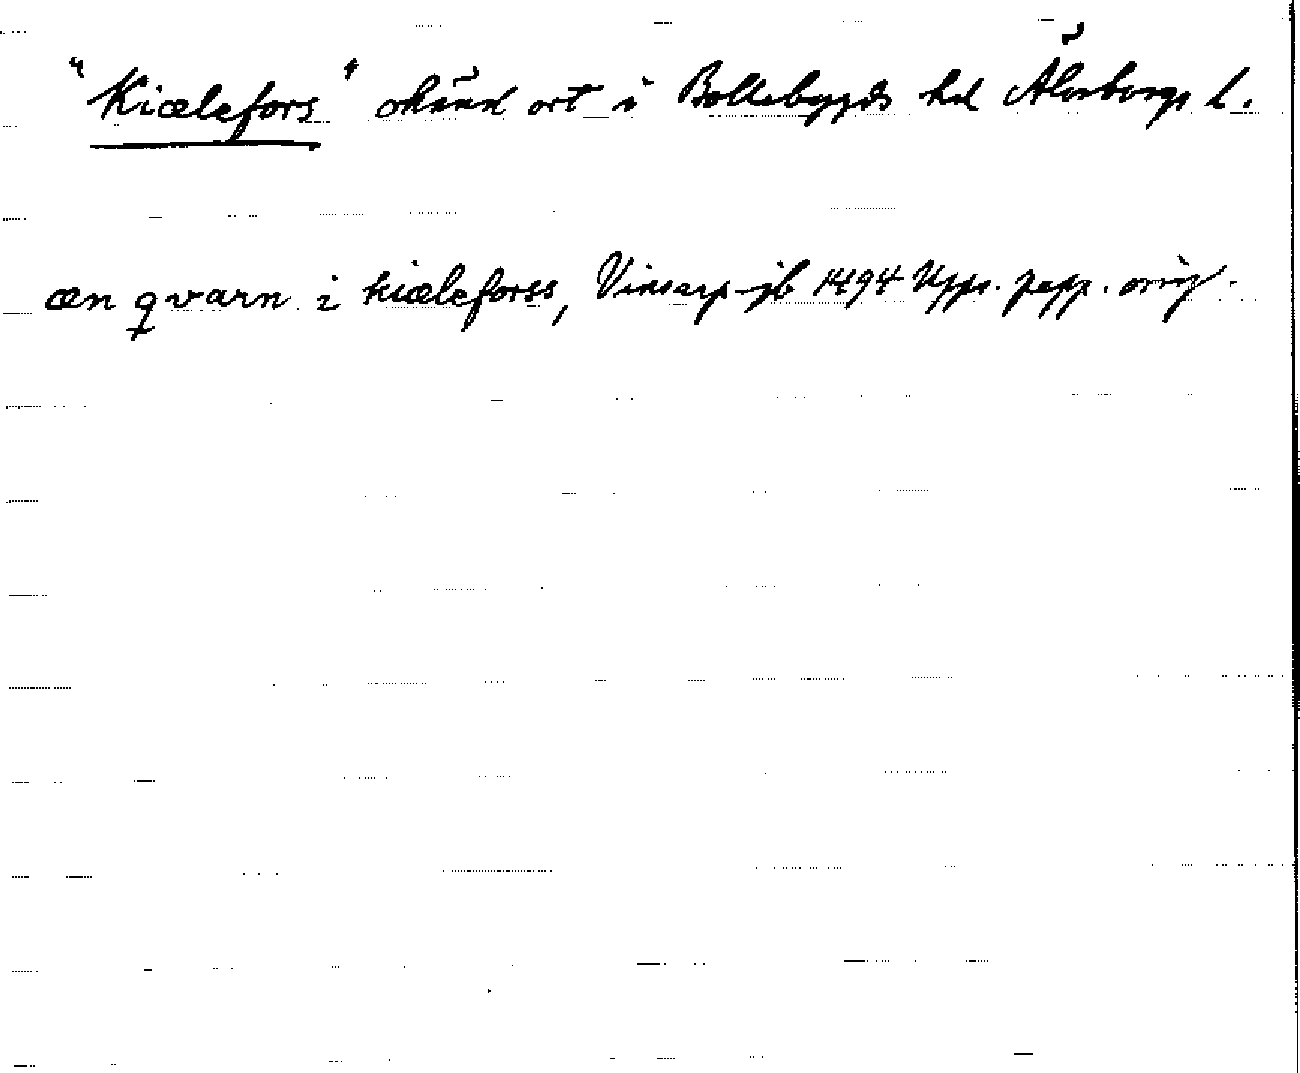 "Kiælefors" okänd ort i Bollebygds hd Älvsborgs l.
æn qvarn i kiæleforss, Vinsarp-jb 1494 Upps. papp. orig.